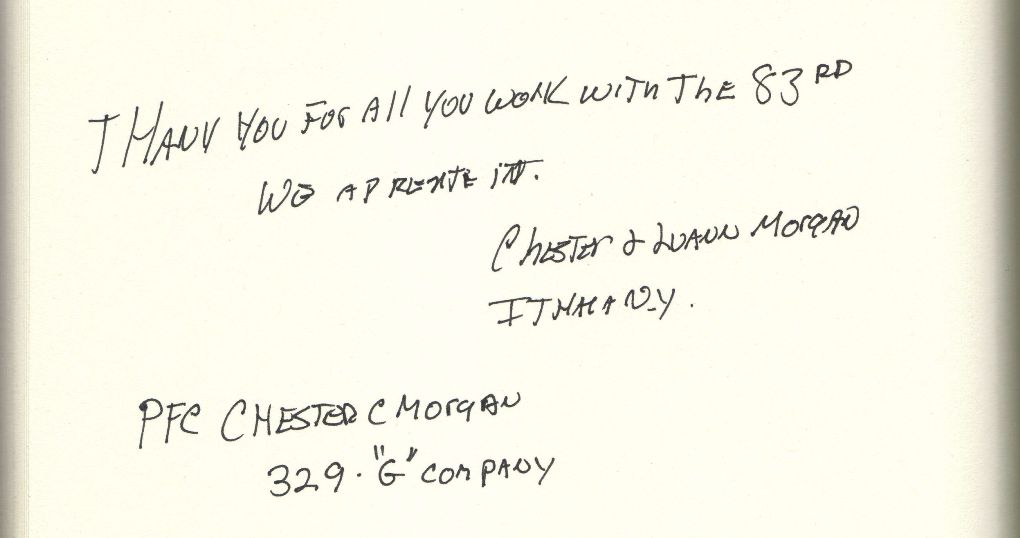 THANK YOU FOR All YOU WORK WITH THE 83RD
WE APRECATE IT.
CHESTER & LUANN MORGAN
ITHACA N.Y.
PFC CHESTER C MORGAN
329. "G" COMPANY